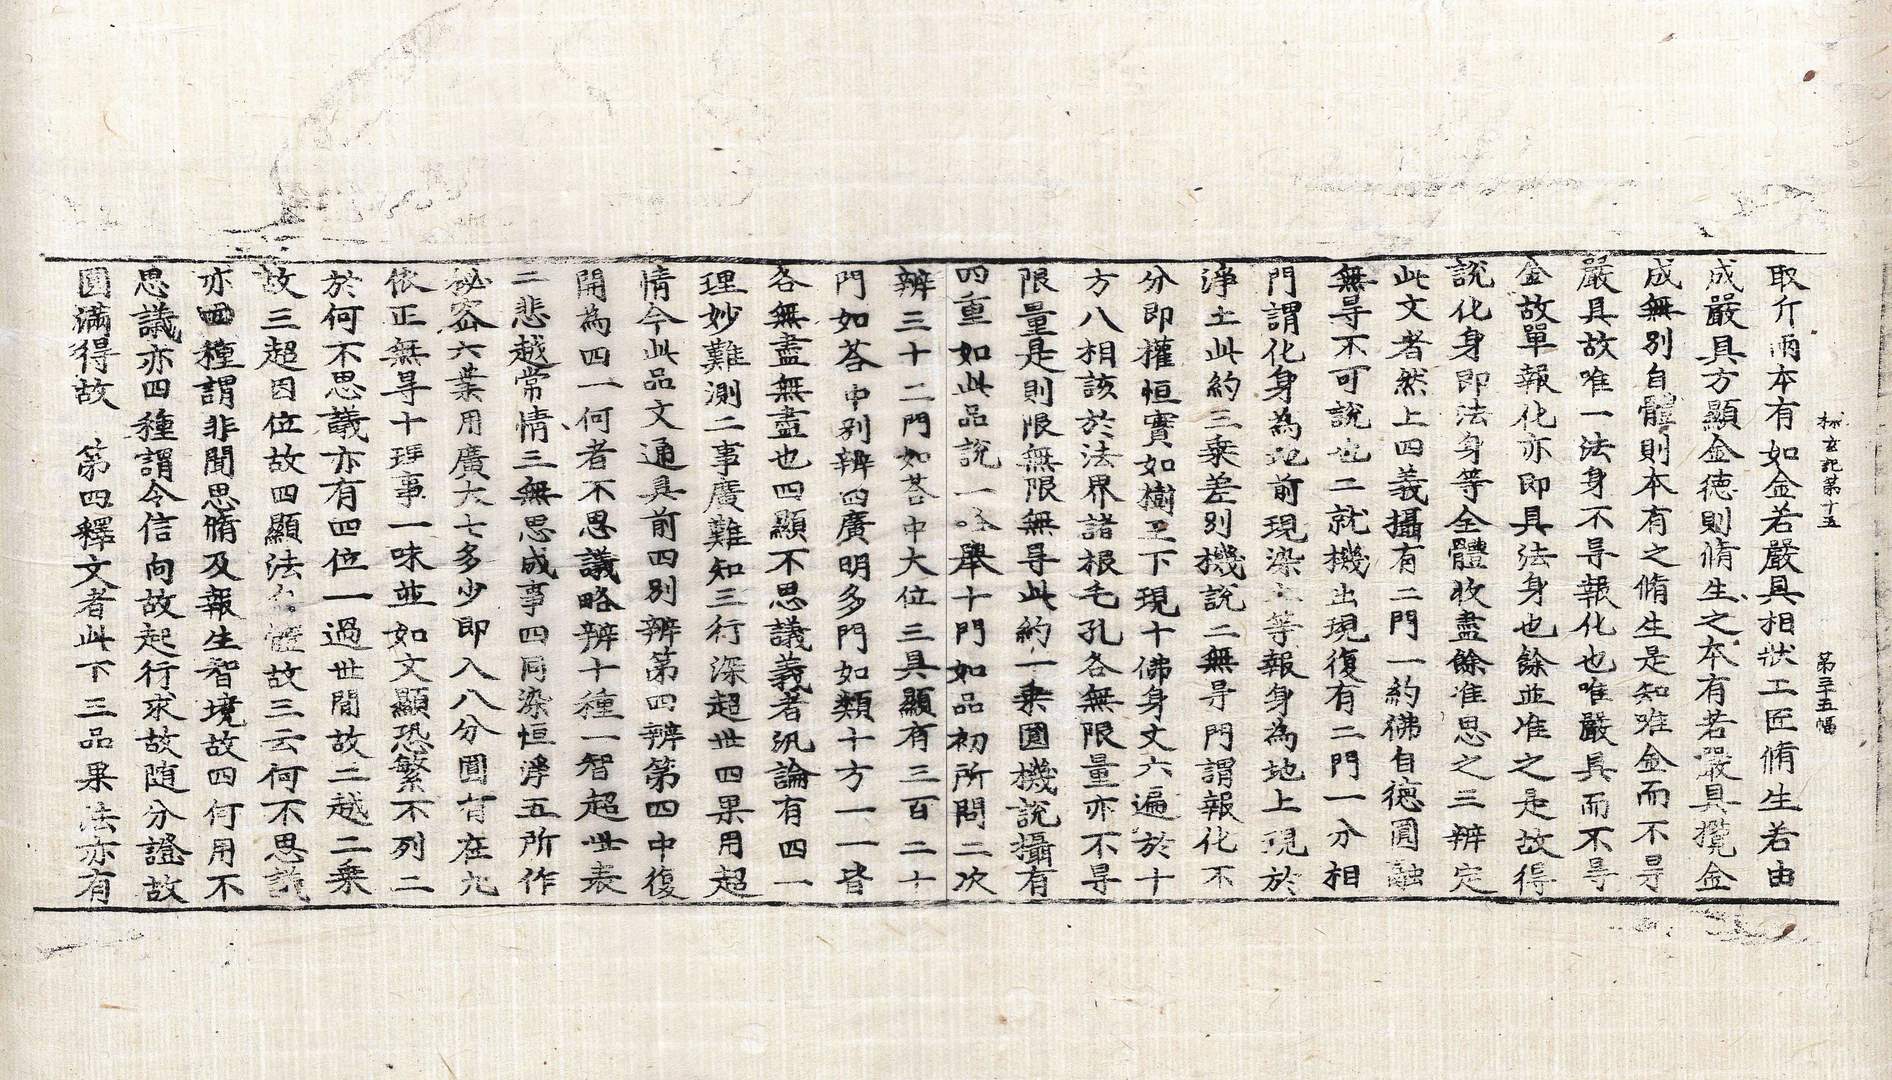 探玄記第十五　第三十五幅
取斤兩本有如金若嚴具相狀工匠脩生若由
成嚴具方顯金德則脩生之本有若嚴具攬金
成無別自體則本有之脩生是知唯金而不㝵
嚴具故唯一法身不㝵報化也唯嚴具而不㝵
金故單報化亦即具法身也餘並准之是故得
說化身即法身等全體收盡餘准思之三辨定
此文者然上四義攝有二門一約佛自德圓融
無㝵不可說也二就機出現復有二門一分相
門謂化身為地前現染土等報身為地上現於
淨土此約三乘差別機說二無㝵門謂報化不
分即權恒實如樹王下現十佛身丈六遍於十
方八相該於法界諸根毛孔各無限量亦不㝵
限量是則限無限無㝵此約一乘圓機說攝有
四重如此品說一略舉十門如品初所問二次
辨三十二門如荅中大位三具顯有三百二十
門如荅中別辨四廣明多門如類十方一一皆
各無盡無盡也四顯不思議義者汎論有四一
理妙難測二事廣難知三行深超世四果用超
情今此品文通具前四別辨第四辨第四中復
開為四一何者不思議略辨十種一智超世表
二悲越常情三無思成事四同染恒淨五所作
秘密六業用廣大七多少即入八分圓自在九
依正無㝵十理事一味並如文顯恐繁不列二
於何不思議亦有四位一過世間故二越二乘
故三超因位故四顯法自體故三云何不思議
亦四種謂非聞思脩及報生智境故四何用不
思議亦四種謂令信向故起行求故随分證故
圓滿得故　第四釋文者此下三品果法亦有